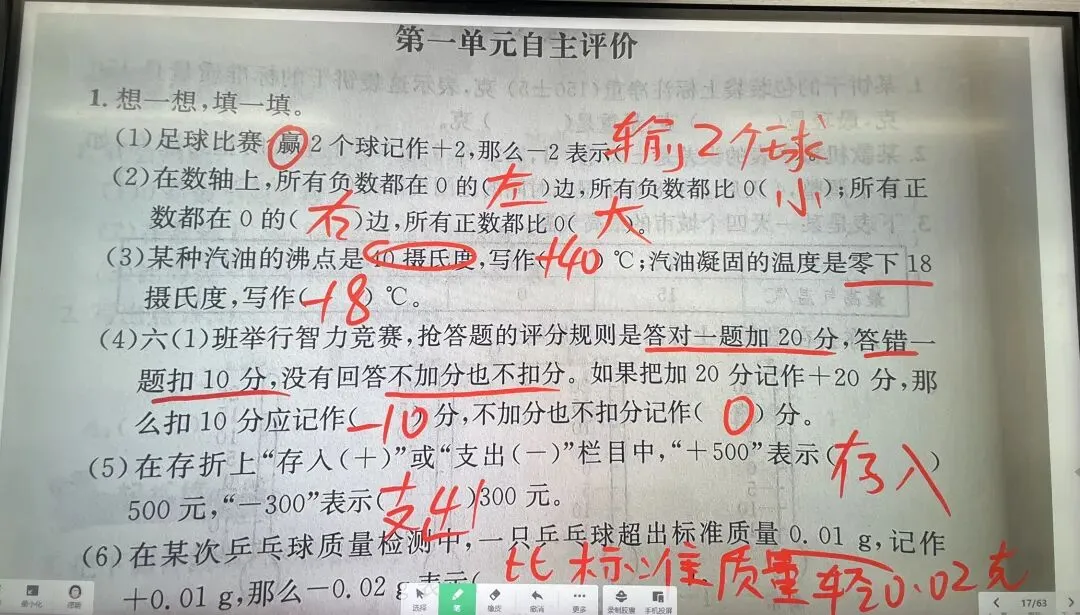 第一单元自主评价
1. 想一想,填一填。
(1)足球比赛,赢2个球记作+2,那么-2表示(输2个球
(2)在数轴上,所有负数都在0的(左)边,所有负数都比0(小);所有正
数都在0的(右)边,所有正数都比0(大)。
(3)某种汽油的沸点是40摄氏度,写作(+40)℃;汽油凝固的温度是零下18
摄氏度,写作(-18)℃。
(4)六(1)班举行智力竞赛,抢答题的评分规则是答对一题加20分,答错一
题扣10分,没有回答不加分也不扣分。如果把加20分记作+20分,那
么扣10分应记作(-10)分,不加分也不扣分记作(0)分。
(5)在存折上“存入(+)”或“支出(-)”栏目中,“+500”表示(存入)
500元,“-300”表示(支出)300元。
(6)在某次乒乓球质量检测中,一只乒乓球超出标准质量0.01 g,记作
+0.01 g,那么-0.02 g表示(比标准质量轻0.02克
最小化 选择 笔 橡皮 撤消 更多 录制胶囊 手机投屏 17/63